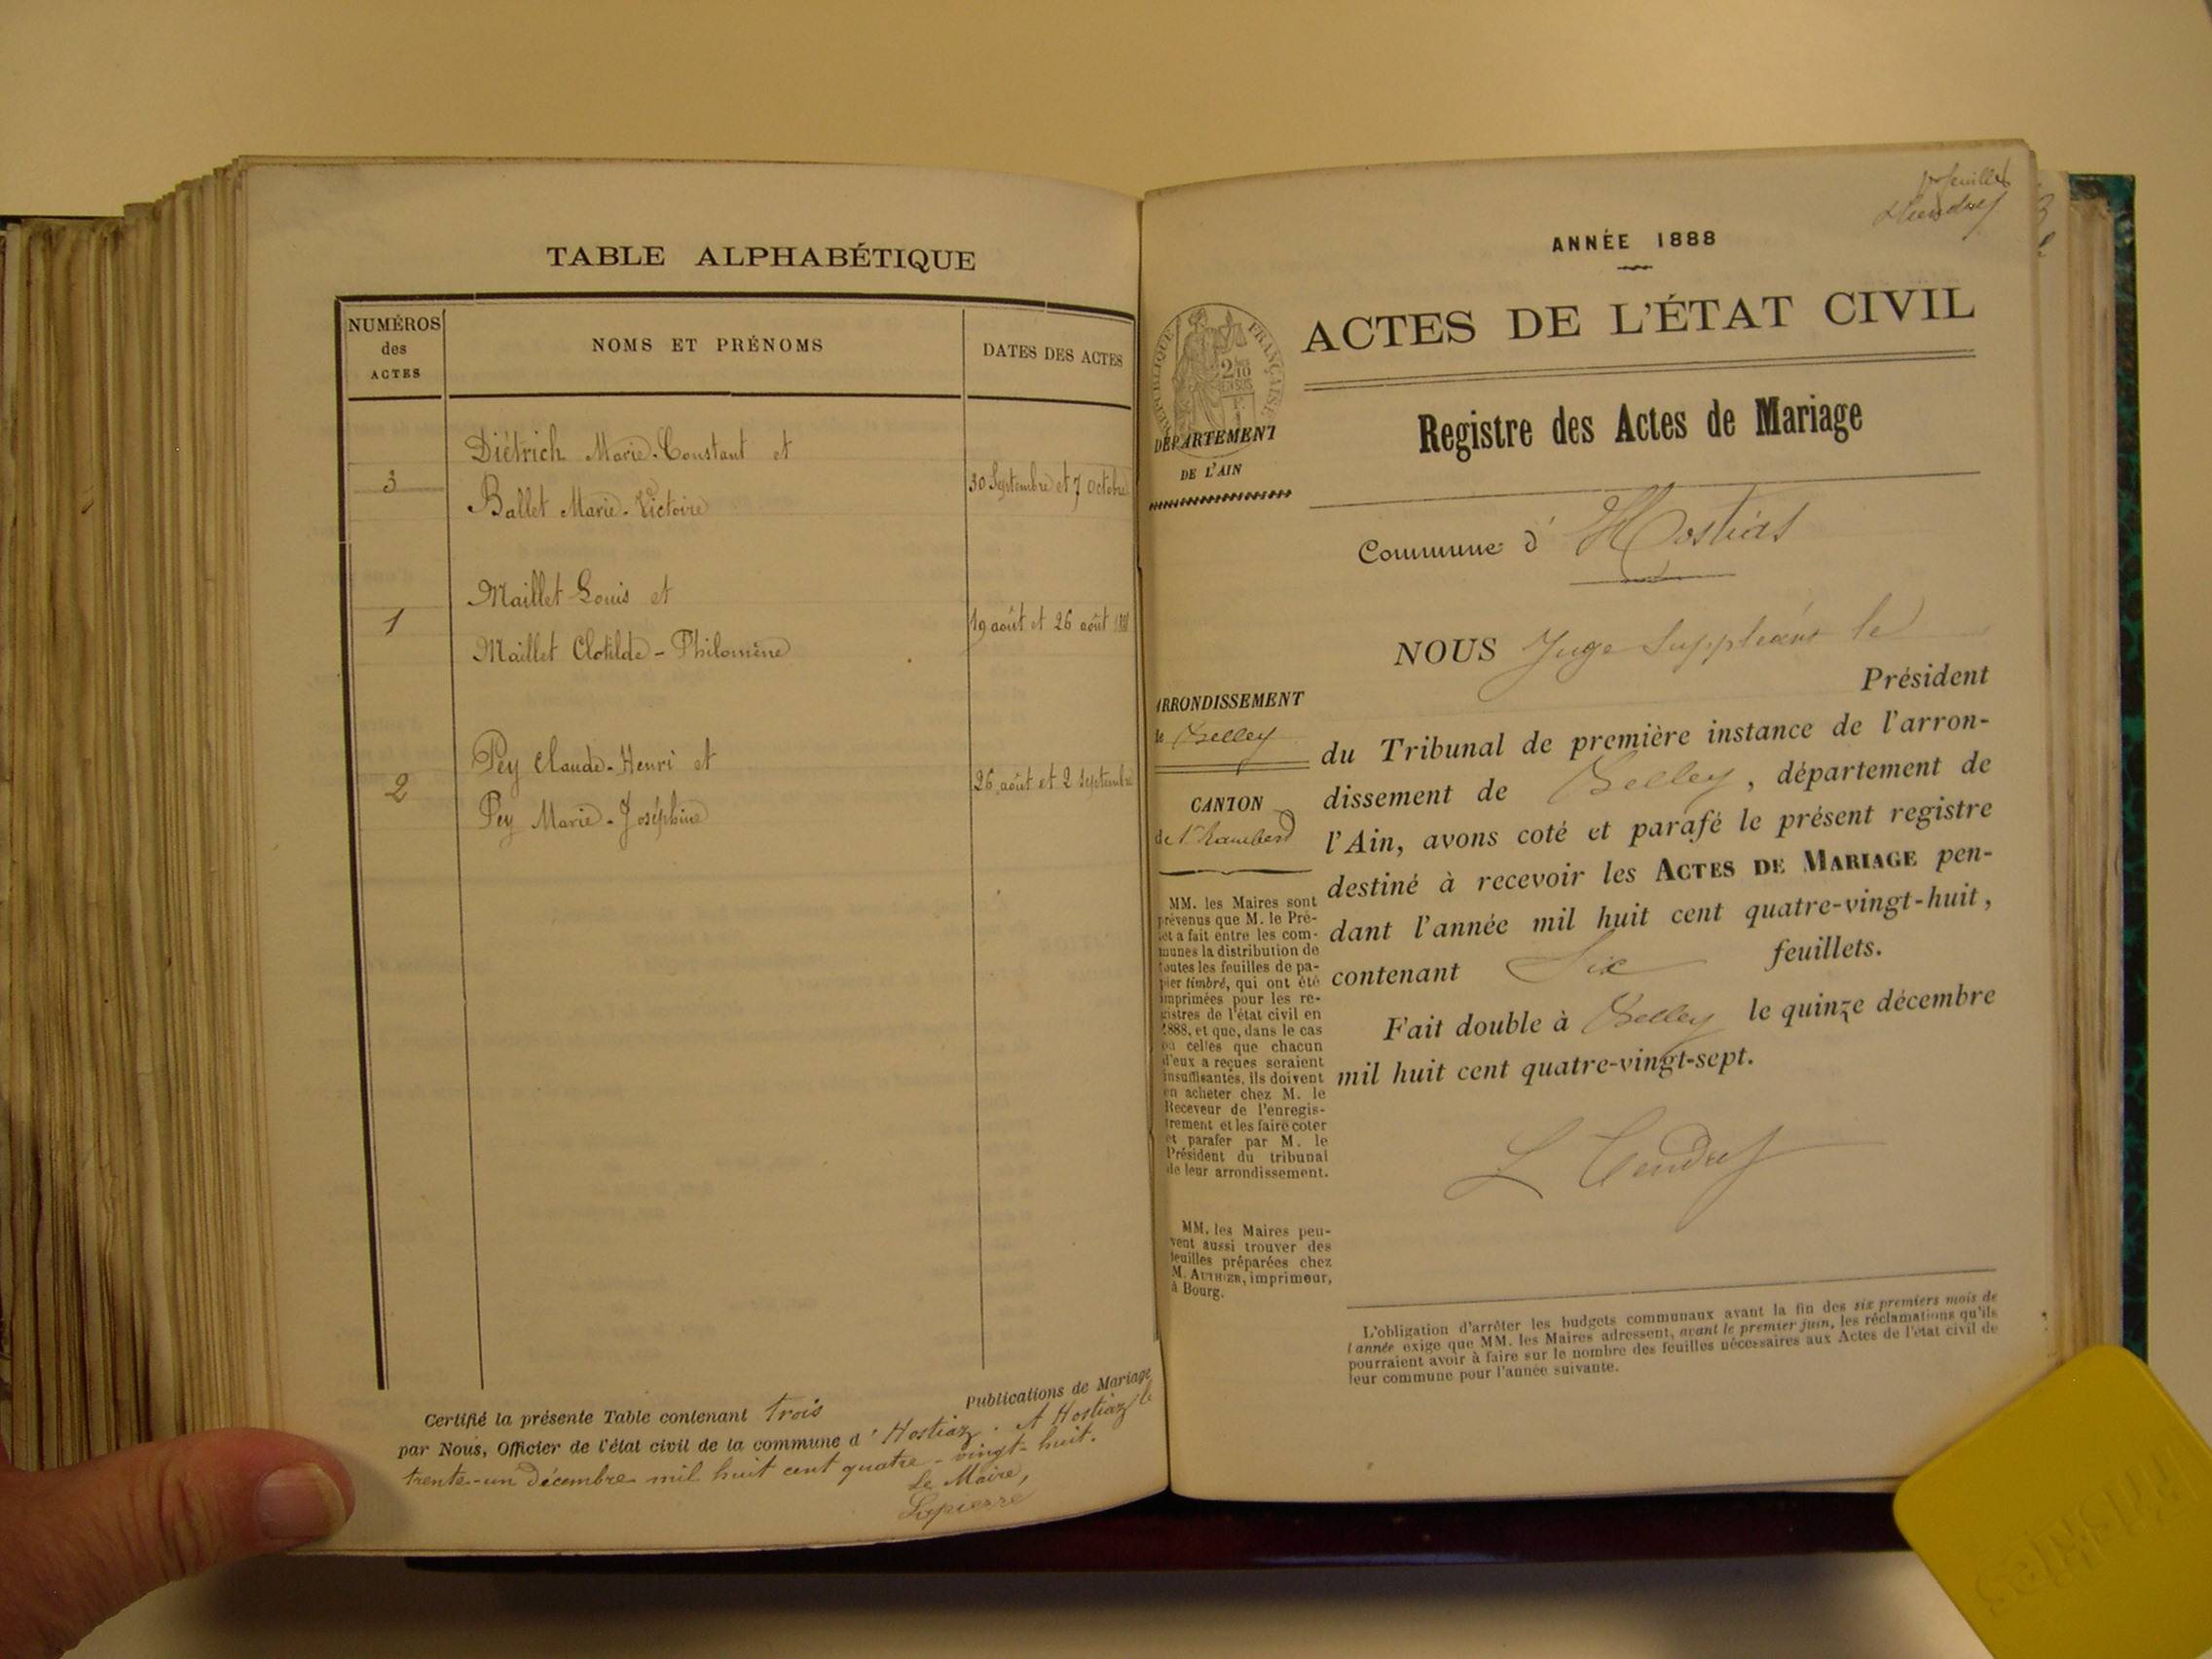 TABLE ALPHABÉTIQUE
NUMÉROS
des
ACTES
NOMS ET PRÉNOMS
DATES DES ACTES
Diétrich Marie-Constant et
3
30 Septembre et 7 Octobre
Ballet Marie-Victoire
Maillet Louis et
1
19 août et 26 août
Maillet Clotilde-Philomène
Pey Claude-Henri et
2
26 août et 2 Septembre
Pey Marie-Joséphine
Certifié la présente Table contenant trois Publications de Mariage
par Nous, Officier de l'état civil de la commune d'Hostiaz. A Hostiaz le
trente-un décembre mil huit cent quatre-vingt-huit.
Le Maire,
Lapierre
ANNÉE 1888
ACTES DE L'ÉTAT CIVIL
Registre des Actes de Mariage
RÉPUBLIQUE FRANÇAISE
DÉPARTEMENT
DE L'AIN
Commune d'Hostias
NOUS Juge Suppléant le
Président
du Tribunal de première instance de l'arron-
dissement de Belley, département de
l'Ain, avons coté et parafé le présent registre
destiné à recevoir les ACTES DE MARIAGE pen-
dant l'année mil huit cent quatre-vingt-huit,
contenant Six feuillets.
Fait double à Belley le quinze décembre
mil huit cent quatre-vingt-sept.
ARRONDISSEMENT
de Belley
CANTON
de St Rambert
MM. les Maires sont
prévenus que M. le Pré-
fet a fait entre les com-
munes la distribution de
toutes les feuilles de pa-
pier timbré, qui ont été
imprimées pour les re-
gistres de l'état civil en
1888, et que, dans le cas
où celles que chacun
d'eux a reçues seraient
insuffisantes, ils doivent
en acheter chez M. le
Receveur de l'enregis-
trement et les faire coter
et parafer par M. le
Président du tribunal
de leur arrondissement.
MM. les Maires peu-
vent aussi trouver des
feuilles préparées chez
M. AUTHIER, imprimeur,
à Bourg.
L'obligation d'arrêter les budgets communaux avant la fin des six premiers mois de
l'année exige que MM. les Maires adressent, avant le premier juin, les réclamations qu'ils
pourraient avoir à faire sur le nombre des feuilles nécessaires aux Actes de l'état civil de
leur commune pour l'année suivante.